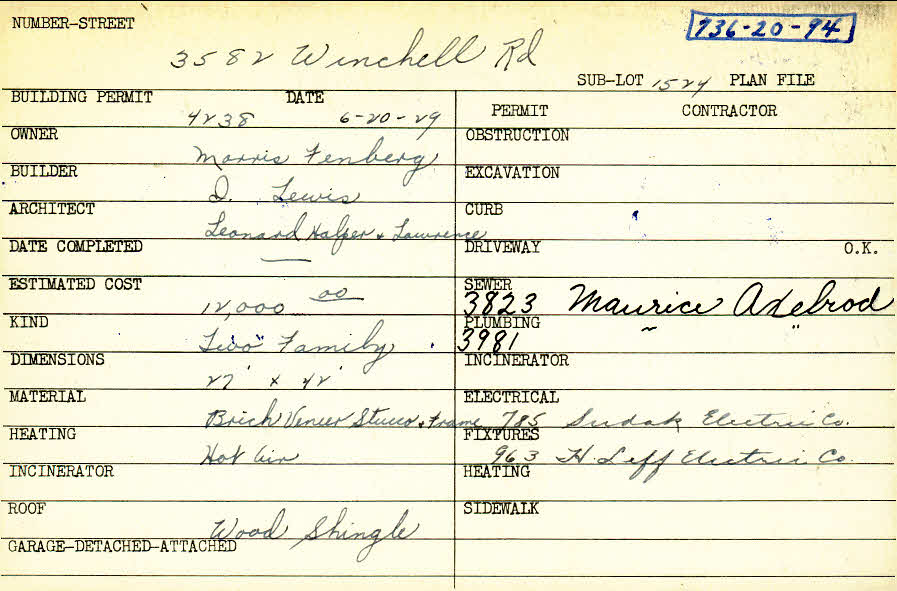 NUMBER-STREET
736-20-94
3582 Winchell Rd
SUB-LOT 1524 PLAN FILE
BUILDING PERMIT DATE
4238 6-20-29
PERMIT CONTRACTOR
OWNER
Morris Fenberg
OBSTRUCTION
BUILDER
D. Lewis
EXCAVATION
ARCHITECT
Leonard Halper & Lawrence
CURB
DATE COMPLETED
—
DRIVEWAY O.K.
ESTIMATED COST
12,000 00
SEWER
3823 Maurice Axelrod
KIND
Two Family
PLUMBING
3981 ~ "
DIMENSIONS
27' x 42'
INCINERATOR
MATERIAL
Brick Veneer Stucco & Frame
ELECTRICAL
785 Sudak Electric Co.
HEATING
Hot Air
FIXTURES
963 H Leff Electric Co.
INCINERATOR
HEATING
ROOF
Wood Shingle
SIDEWALK
GARAGE-DETACHED-ATTACHED